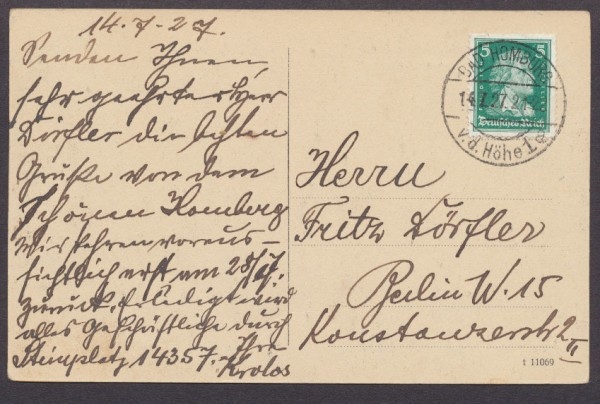 14.7.27.
Senden Ihnen,
sehr geehrter Herr
Dörfler die besten
Grüße von dem
schönen Homberg
Wir fahren voraus-
sichtlich erst am 28/7.
zurück, erledigt wird
alles Geschäftliche durch
14357. Ihre
Krolos
5 5
Deutsches Reich
BAD HOMBURG
14.7.27.
v.d. Höhe 1
Herrn
Fritz Dörfler
Berlin W. 15
Konstanzerstr 2
II
t 11069